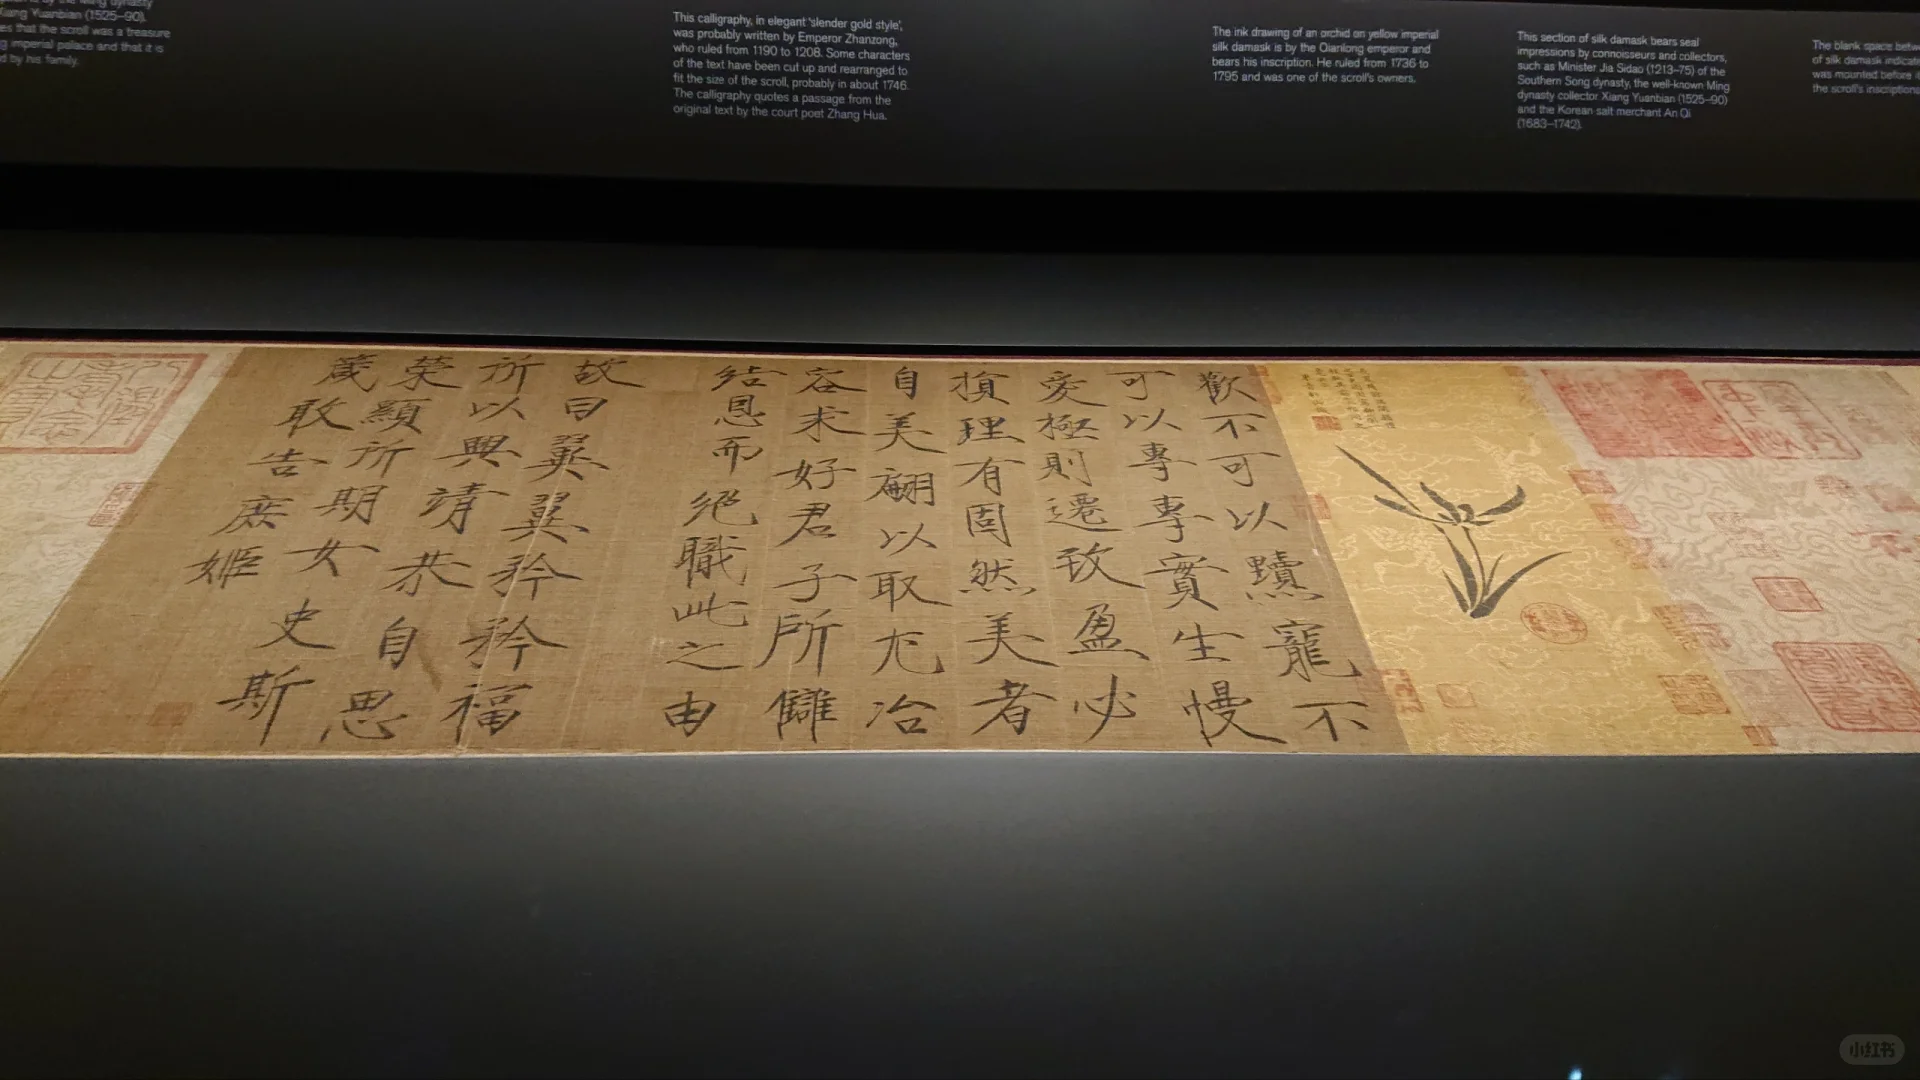 Xiang Yuanbian (1525–90).
es that the scroll was a treasure
g imperial palace and that it is
d by his family.
This calligraphy, in elegant 'slender gold style',
was probably written by Emperor Zhanzong,
who ruled from 1190 to 1208. Some characters
of the text have been cut up and rearranged to
fit the size of the scroll, probably in about 1746.
The calligraphy quotes a passage from the
original text by the court poet Zhang Hua.
The ink drawing of an orchid on yellow imperial
silk damask is by the Qianlong emperor and
bears his inscription. He ruled from 1736 to
1795 and was one of the scroll's owners.
This section of silk damask bears seal
impressions by connoisseurs and collectors,
such as Minister Jia Sidao (1213–75) of the
Southern Song dynasty, the well-known Ming
dynasty collector Xiang Yuanbian (1525–90)
and the Korean salt merchant An Qi
(1683–1742).
The blank space betw
of silk damask indicate
was mounted before it
the scroll's inscriptions
歡不可以黷寵不
可以專專實生慢
愛極則遷致盈必
損理有固然美者
自美翩以取尤冶
容求好君子所讎
結恩而絕職此之由
故曰翼翼矜矜福
所以興靖恭自思
榮顯所期女史斯
箴敢告庶姬
小红书